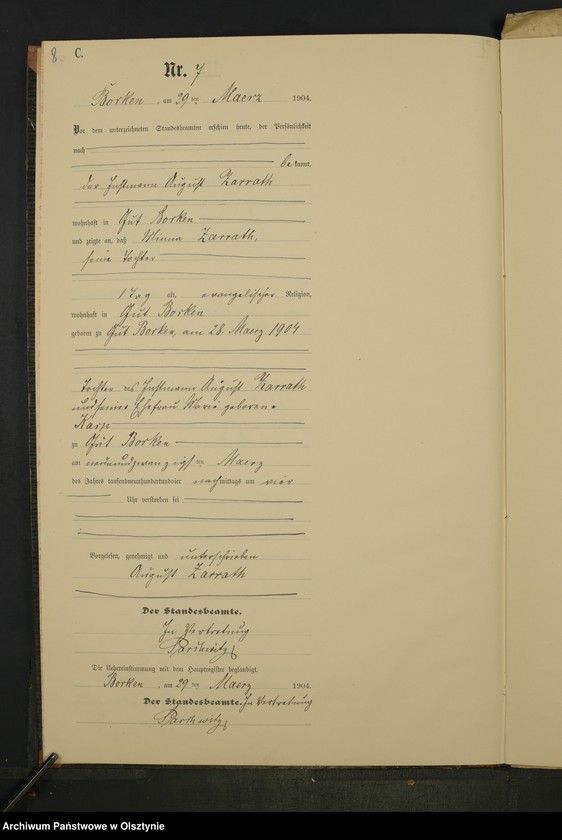 8.
C.
Nr. 7
Borken, am 29 ten Maerz 1904.
Vor dem unterzeichneten Standesbeamten erschien heute, der Persönlichkeit
nach
be kannt,
der Instmann August Zarrath
wohnhaft in Gut Borken
und zeigte an, daß Minna Zarrath,
seine Tochter
1 Tag alt, evangelischer Religion,
wohnhaft in Gut Borken
geboren zu Gut Borken, am 28. Maerz 1904
Tochter des Instmann August Zarrath
und seiner Ehefrau Marie geborene
zu Gut Borken
am neunundzwanzigsten Maerz
des Jahres tausendneunhundertundvier nachmittags um vier
Uhr verstorben sei
Vorgelesen, genehmigt und unterschrieben
August Zarrath
Der Standesbeamte.
In Vertretung
Die Uebereinstimmung mit dem Hauptregister beglaubigt.
Borken, am 29 ten Maerz 1904.
Der Standesbeamte. In Vertretung
Archiwum Państwowe w Olsztynie